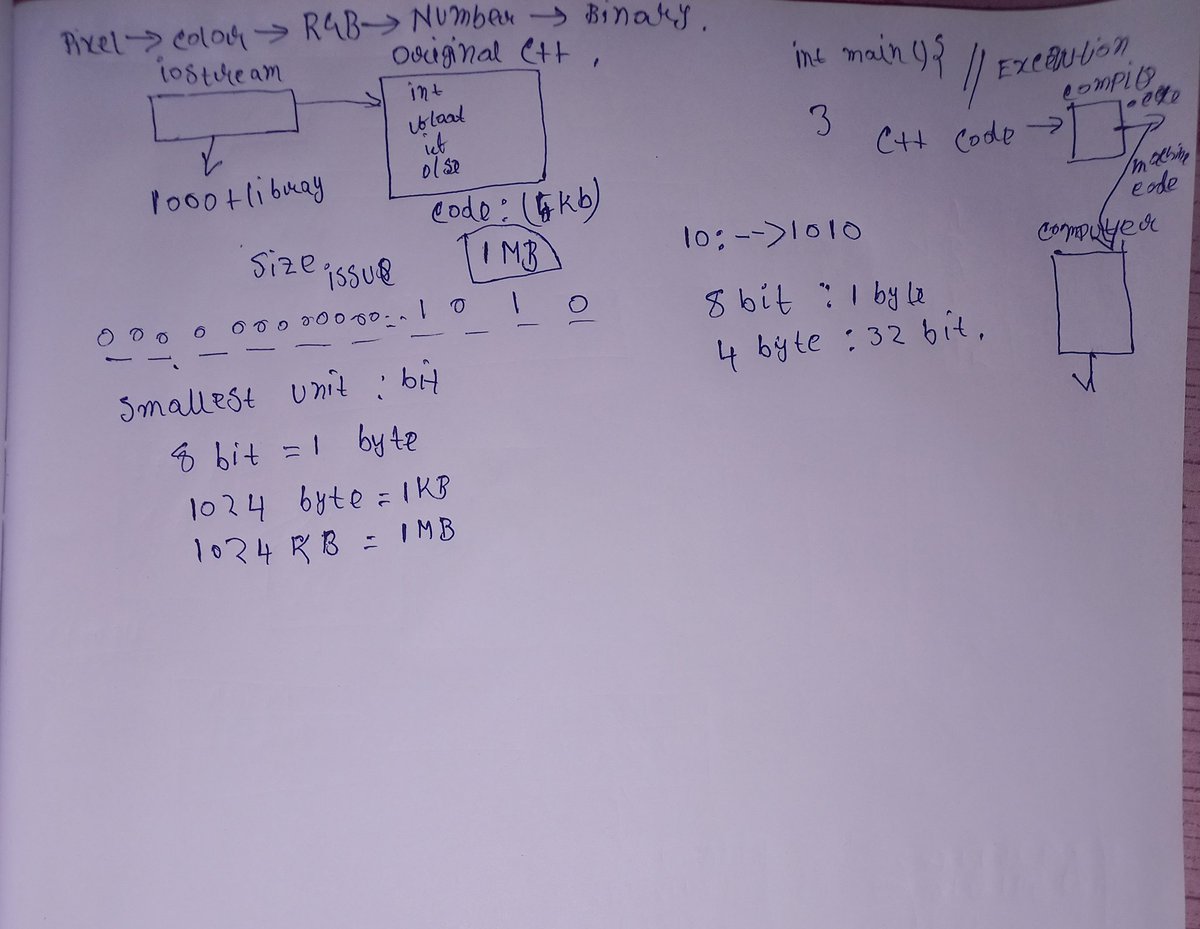 Pixel → Color → RGB → Number → Binary.
iostream
Original C++ .
int
float
if
else
1000+ library
code: (4kb)
Size issue
1 MB
0 0 0 0 0 0 0 0 0 0 0 0 : . . 1 0 1 0
Smallest unit : bit
8 bit = 1 byte
1024 byte = 1KB
1024 KB = 1MB
int main(){ // Execution
}
C++ Code →
.exe
machine
code
computer
10: --> 1010
8 bit : 1 byte
4 byte : 32 bit.